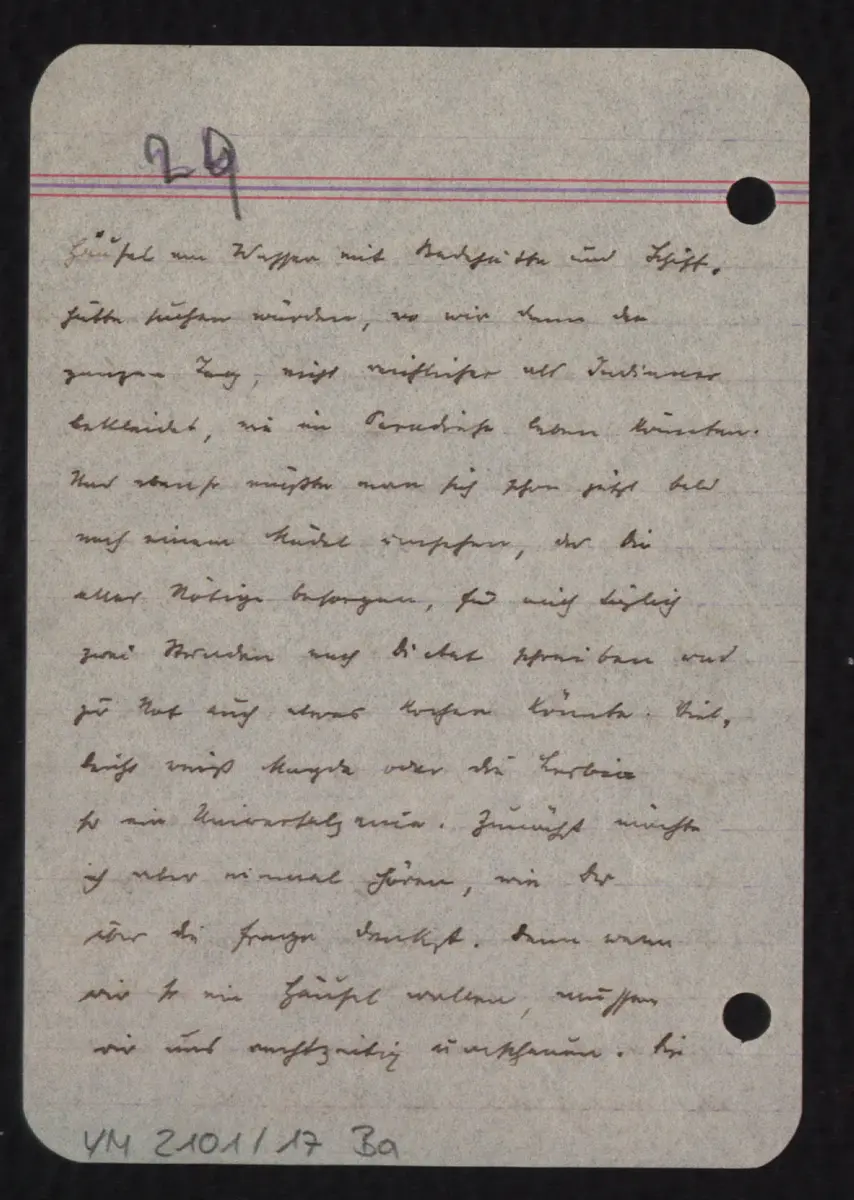 29
Häusel am Wasser mit Badehütte und Schiff-
hütte suchen würden, wo wir dann den
ganzen Tag, nicht reichlicher als Indianer
bekleidet, wie im Paradiese leben könnten.
Und ebenso müßte man sich schon jetzt bald
nach einem Mädel umsehen, das Dir
alles Nötige besorgen, für mich täglich
zwei Stunden nach Diktat schreiben und
zur Not auch etwas kochen könnte. Viel-
leicht weiß Magda oder die Lesbia
so ein Universalgenie. Zunächst möchte
ich aber einmal hören, wie Du
über die Frage denkst. Denn wenn
wir so ein Häusel wollen, müssen
wir uns rechtzeitig umschauen. Die
YM 2101/17 Ba